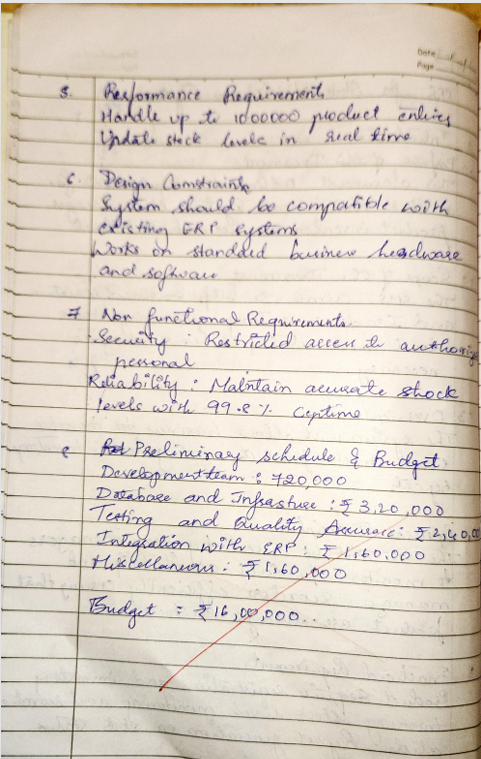 Date
Page
5. Performance Requirements
Handle up to 1000000 product entries
Update stock levels in real time
6. Design Constraints
System should be compatible with
existing ERP systems
Works on standard business hardware
and software
7 Non functional Requirements.
Security : Restricted access to authoriz
personal
Reliability : Maintain accurate stock
levels with 99.8% uptime
8 Preliminary schedule & Budget
Development team : 720,000
Database and : ₹ 3,20,000
Testing and Quality : ₹ 2,40,00
Integration with ERP : ₹ 1,60,000
Miscellaneous : ₹ 1,60,000
Budget : ₹ 16,00,000.